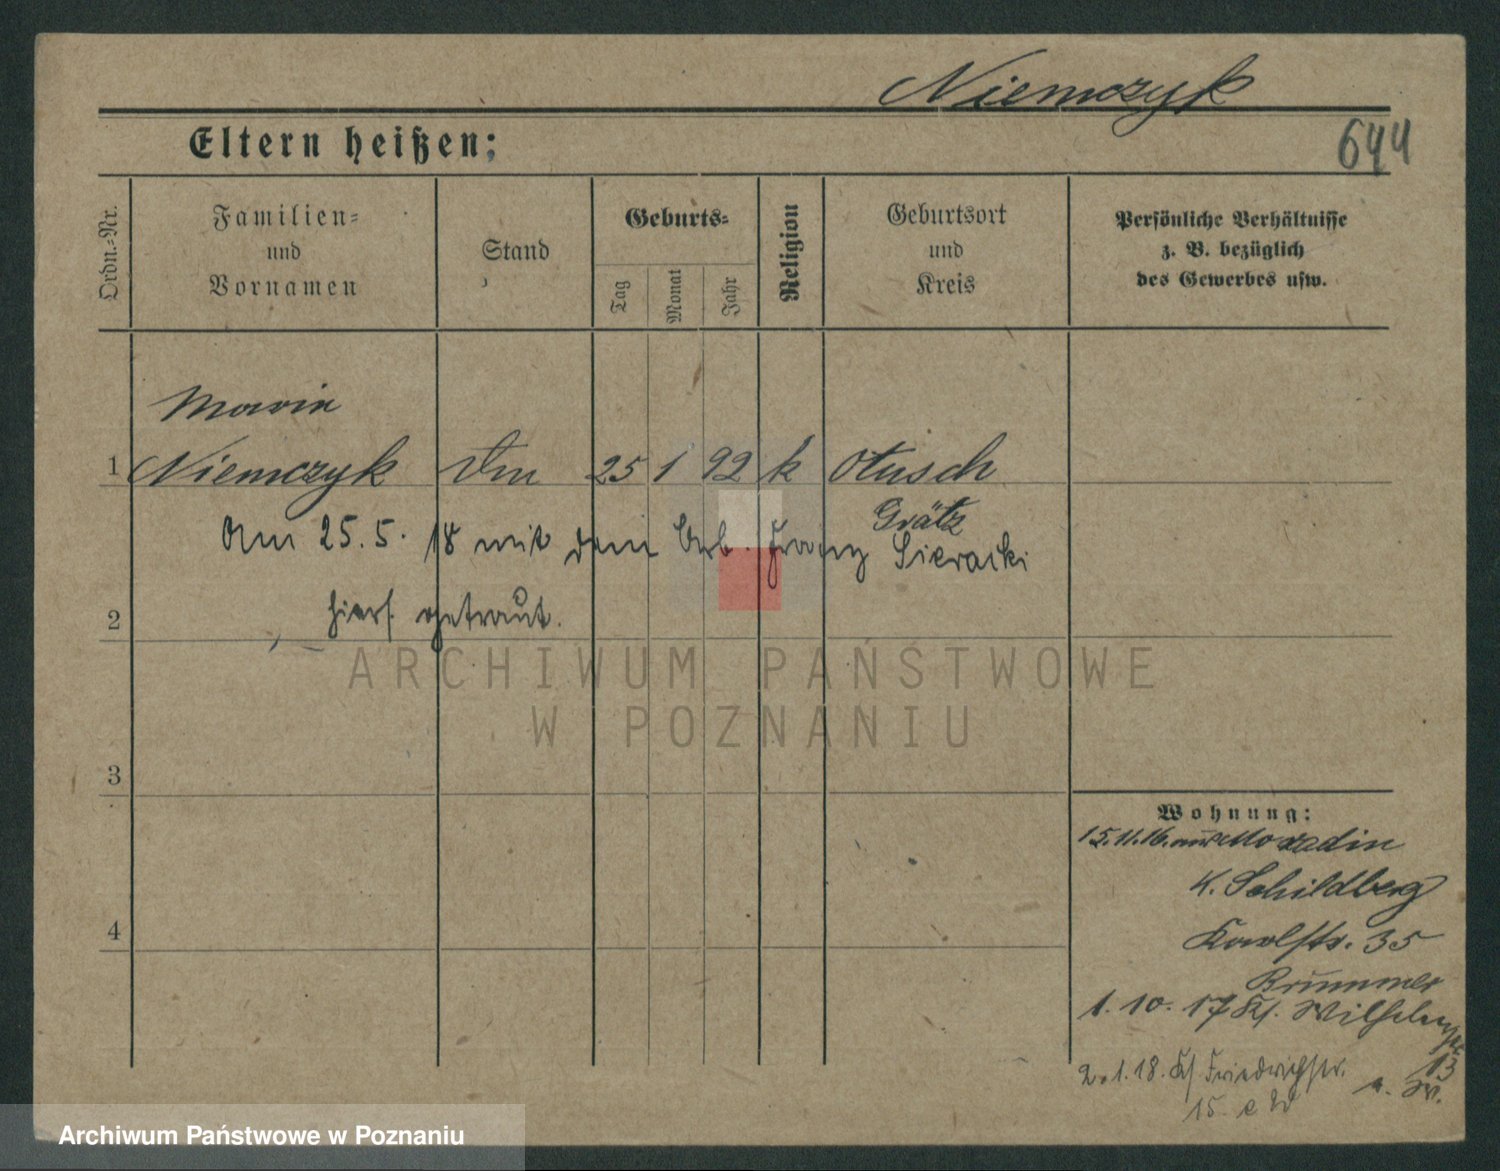 Niemczyk
644
Eltern heißen:
Ordn.-Nr.
Familien-
und
Vornamen
Stand
Geburts-
Tag
Monat
Jahr
Religion
Geburtsort
und
Kreis
Persönliche Verhältnisse
z. B. bezüglich
des Gewerbes usw.
Maria
1 Niemczyk 25 1 92 k Otusch
Grätz
Am 25.5. 18 mit dem Arb. Franz Sieracki
2 hiers. getraut.
ARCHIWUM PAŃSTWOWE
W POZNANIU
3
Wohnung:
15.11.16. aus
K. Schildberg
4 Karlstr. 35
Brummer
1. 10. 17 Kl. Wilhelmstr
13
2.1.18. Kl Friedrichstr.
15
Archiwum Państwowe w Poznaniu